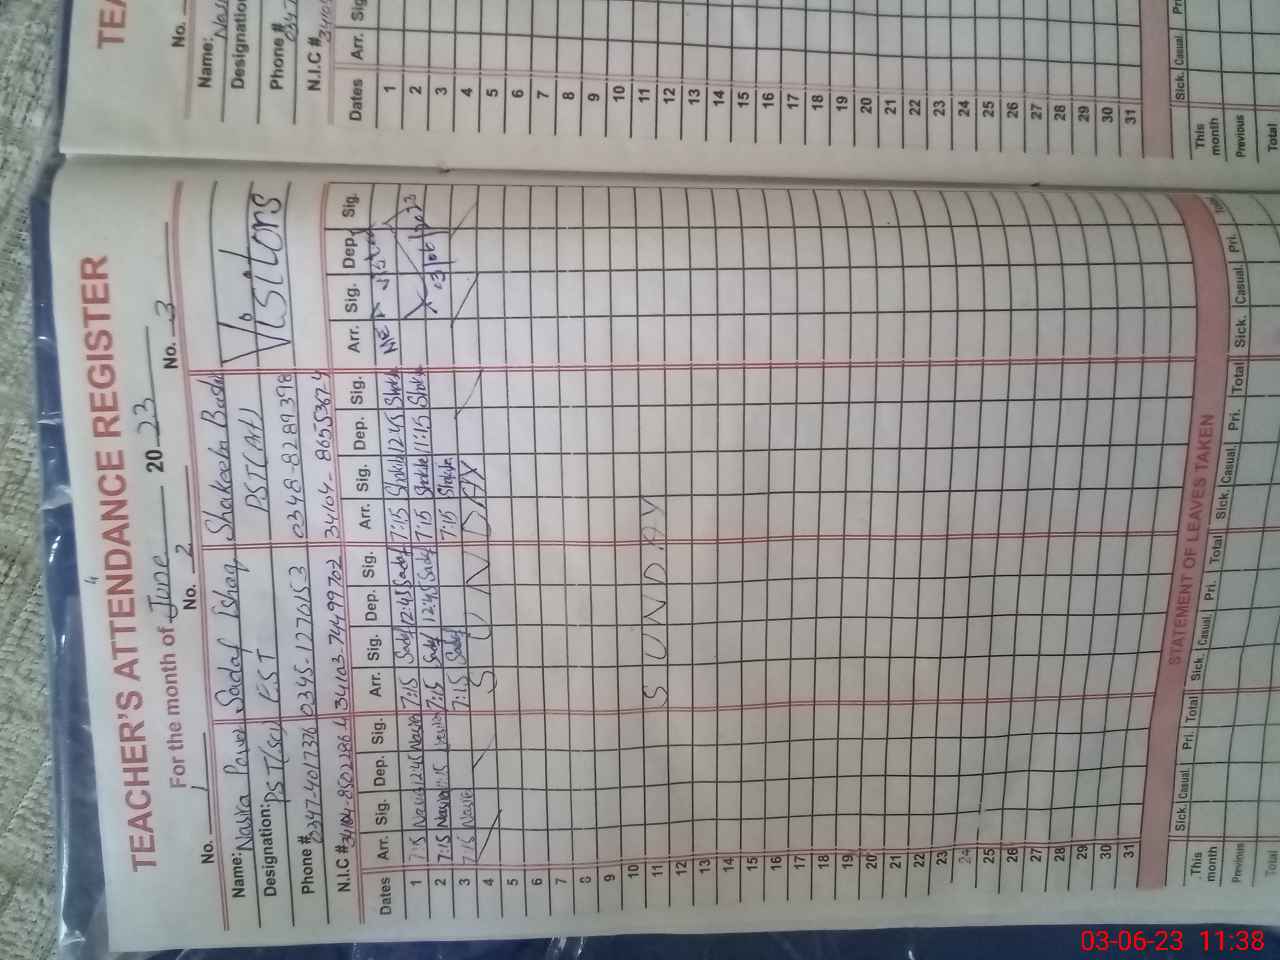 TEACHER'S ATTENDANCE REGISTER
4
For the month of June 2023
No. 1 No. 2 No. 3
Name: Nasira Sadaf Ishaq Shakeela
Designation: PST EST PST Visitors
Phone # 0347-4017376 0345-1270153 0348-8289398
N.I.C # 34103-74499702
Dates Arr. Sig. Dep. Sig. Arr. Sig. Dep. Sig. Arr. Sig. Dep. Sig. Arr. Sig. Dep. Sig.
1 7:15 12:45 7:15 Sadaf 12:45 Sadaf 7:15 12:45
2 7:15 11:15 7:15 Sadaf 12:45 Sadaf 7:15 11:15 03/06/2023
3 7:15 7:15 Sadaf 7:15
4 SUNDAY
5
6
7
8
9
10
11 SUNDAY
12
13
14
15
16
17
18
19
20
21
22
23
24
25
26
27
28
29
30
31
STATEMENT OF LEAVES TAKEN
Sick. Casual. Pri. Total Sick. Casual. Pri. Total Sick. Casual. Pri. Total Sick. Casual. Pri.
This month
Previous
Total
No.
Name:
Designation
Phone #
N.I.C #
Dates Arr. Sig
1
2
3
4
5
6
7
8
9
10
11
12
13
14
15
16
17
18
19
20
21
22
23
24
25
26
27
28
29
30
31
Sick. Casual.
This month
Previous
Total
03-06-23 11:38